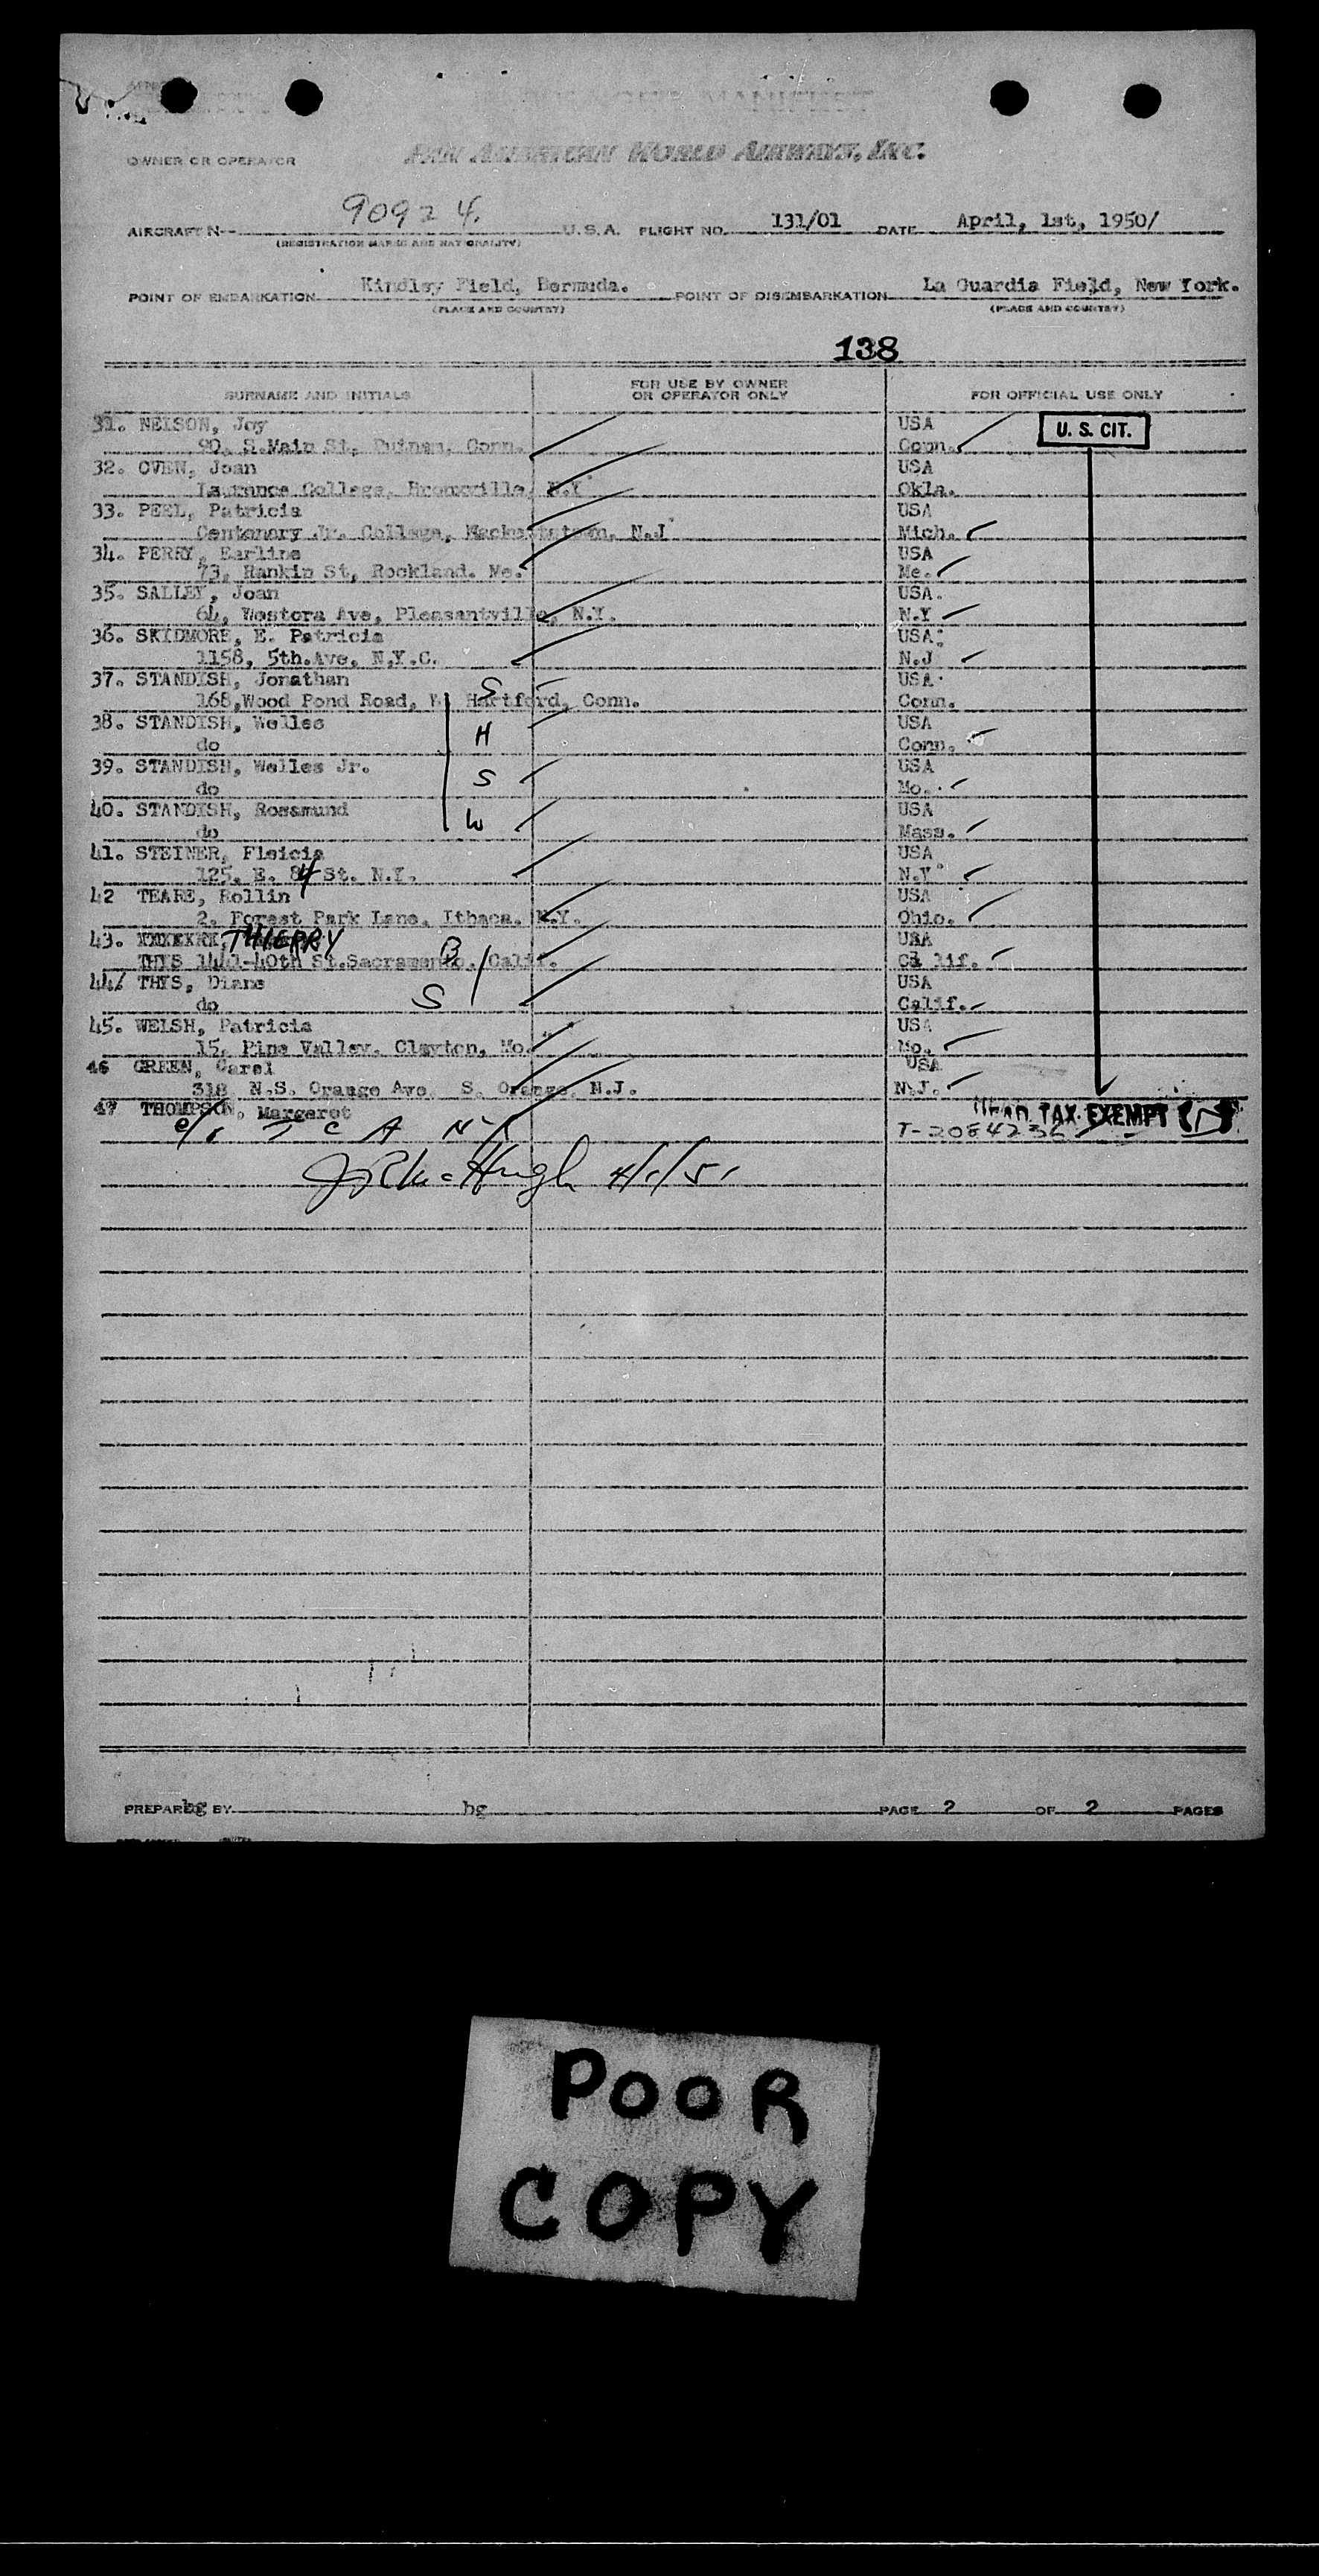 PASSENGER MANIFEST
OWNER OR OPERATOR PAN AMERICAN WORLD AIRWAYS, INC.
AIRCRAFT N-- 90924. U.S.A. FLIGHT NO. 131/01 DATE April, 1st, 1950/
(REGISTRATION MARKS AND NATIONALITY)
POINT OF EMBARKATION Kindley Field, Bermuda. POINT OF DISEMBARKATION La Guardia Field, New York.
(PLACE AND COUNTRY) (PLACE AND COUNTRY)
138
SURNAME AND INITIALS FOR USE BY OWNER OR OPERATOR ONLY FOR OFFICIAL USE ONLY
31. NELSON, Joy USA U. S. CIT.
90, S.Main St, Putnam, Conn. Conn.
32. OVEN, Joan USA
Laurance College, Bronxville, N.Y Okla.
33. PEEL, Patricia USA
Centenary Jr. College, Hackettstown, N.J Mich.
34. PERRY, Earline USA
73, Rankin St, Rockland. Me. Me.
35. SALLEY, Joan USA.
64, Westora Ave, Pleasantville, N.Y. N.Y
36. SKIDMORE, E. Patricia USA.
1158, 5th.Ave, N.Y.C. N.J
37. STANDISH, Jonathan S USA.
168,Wood Pond Road, W. Hartford, Conn. Conn.
38. STANDISH, Welles H USA
do Conn.
39. STANDISH, Welles Jr. S USA
do Mo.
40. STANDISH, Rosamund W USA
do Mass.
41. STEINER, Fleicia USA
125, E. 84 St. N.Y. N.Y
42 TEARE, Rollin USA
2. Forest Park Lane, Ithaca. N.Y. Ohio.
43. THIERRY B USA
THYS 1441-40th St.Sacramento. Calif. Ca lif.
44/ THYS, Diane S USA
do Calif.
45. WELSH, Patricia USA
15, Pine Valley. Clayton, Mo. Mo.
46 GREEN, Carol USA
318 N.S. Orange Ave. S. Orange, N.J. N.J.
47 THOMPSON, Margaret TAX EXEMPT
c/o T C A N.Y. T-2084236
4/1/51
PREPARED BY bg bg PAGE 2 OF 2 PAGES
POOR
COPY